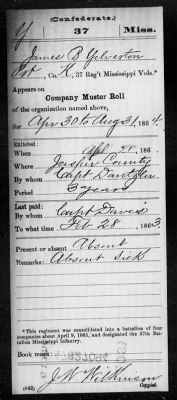 (Confederate.)
Y 37 Miss.
James B Yelverton
Pvt, Co. K, 37 Reg't Mississippi Vols.*
Appears on
Company Muster Roll
of the organization named above,
for Apr 30 to Aug 31, 1864.
Enlisted:
When Apl 20, 186 .
Where Jasper County
By whom Capt Dantzler
Period 3 years
Last paid:
By whom Capt Davis
To what time Feb 28, 1863.
Present or absent Absent
Remarks: Absent Sick
*This regiment was consolidated into a battalion of four
companies about April 9, 1865, and designated the 37th Bat-
talion Mississippi Infantry.
Book mark:
(642) J W Wilkinson
Copyist.